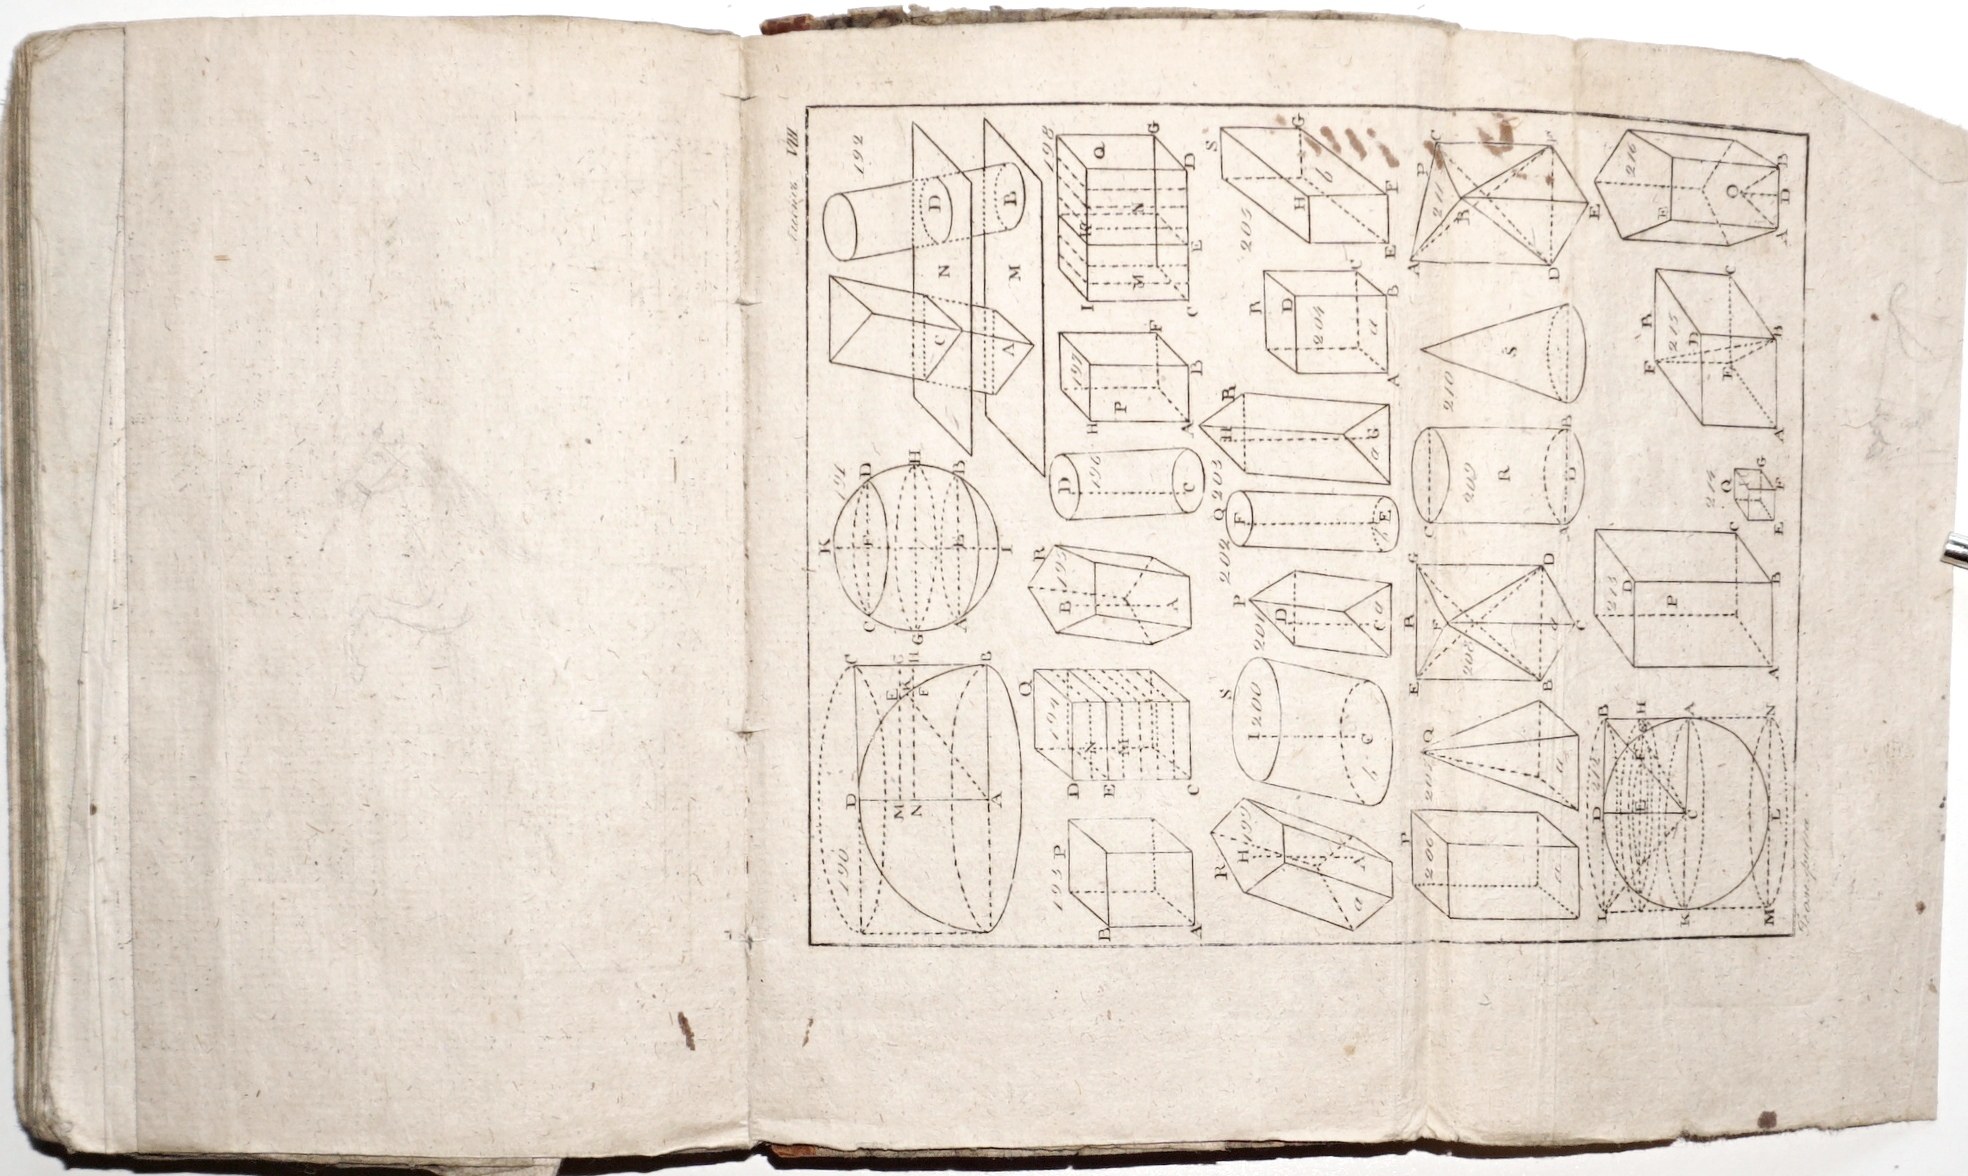 VIII
190
D C
E G
M K H
N F
A B
191
K
C F D
G H
A E B
I
192
D
N
C
B
M
A
193 P
B
A
194 Q
D N
E M
C
195 R
B
A
196
D
C
197
H
P
F
A B
198
G
Q
I K
M N
C E D
199
R
H
A
a
200
S
I
C
201
P
D
C a
202
Q
F
E
203
R
H
G
a
204
R
D
C
a
A B
205
S
G
H
b
E F
206
P
a
207
Q
a
208
R
E G
F
B D
a
C
209
C
R
A D B
210
S
211
P
A C
R
D F
E
212
L D B
I E H
K C A
M L N
213
D
P
C
A B
214
Q
G
E F
215
R
F D
E C
A B
216
E
O
A D B
Geom. pura.